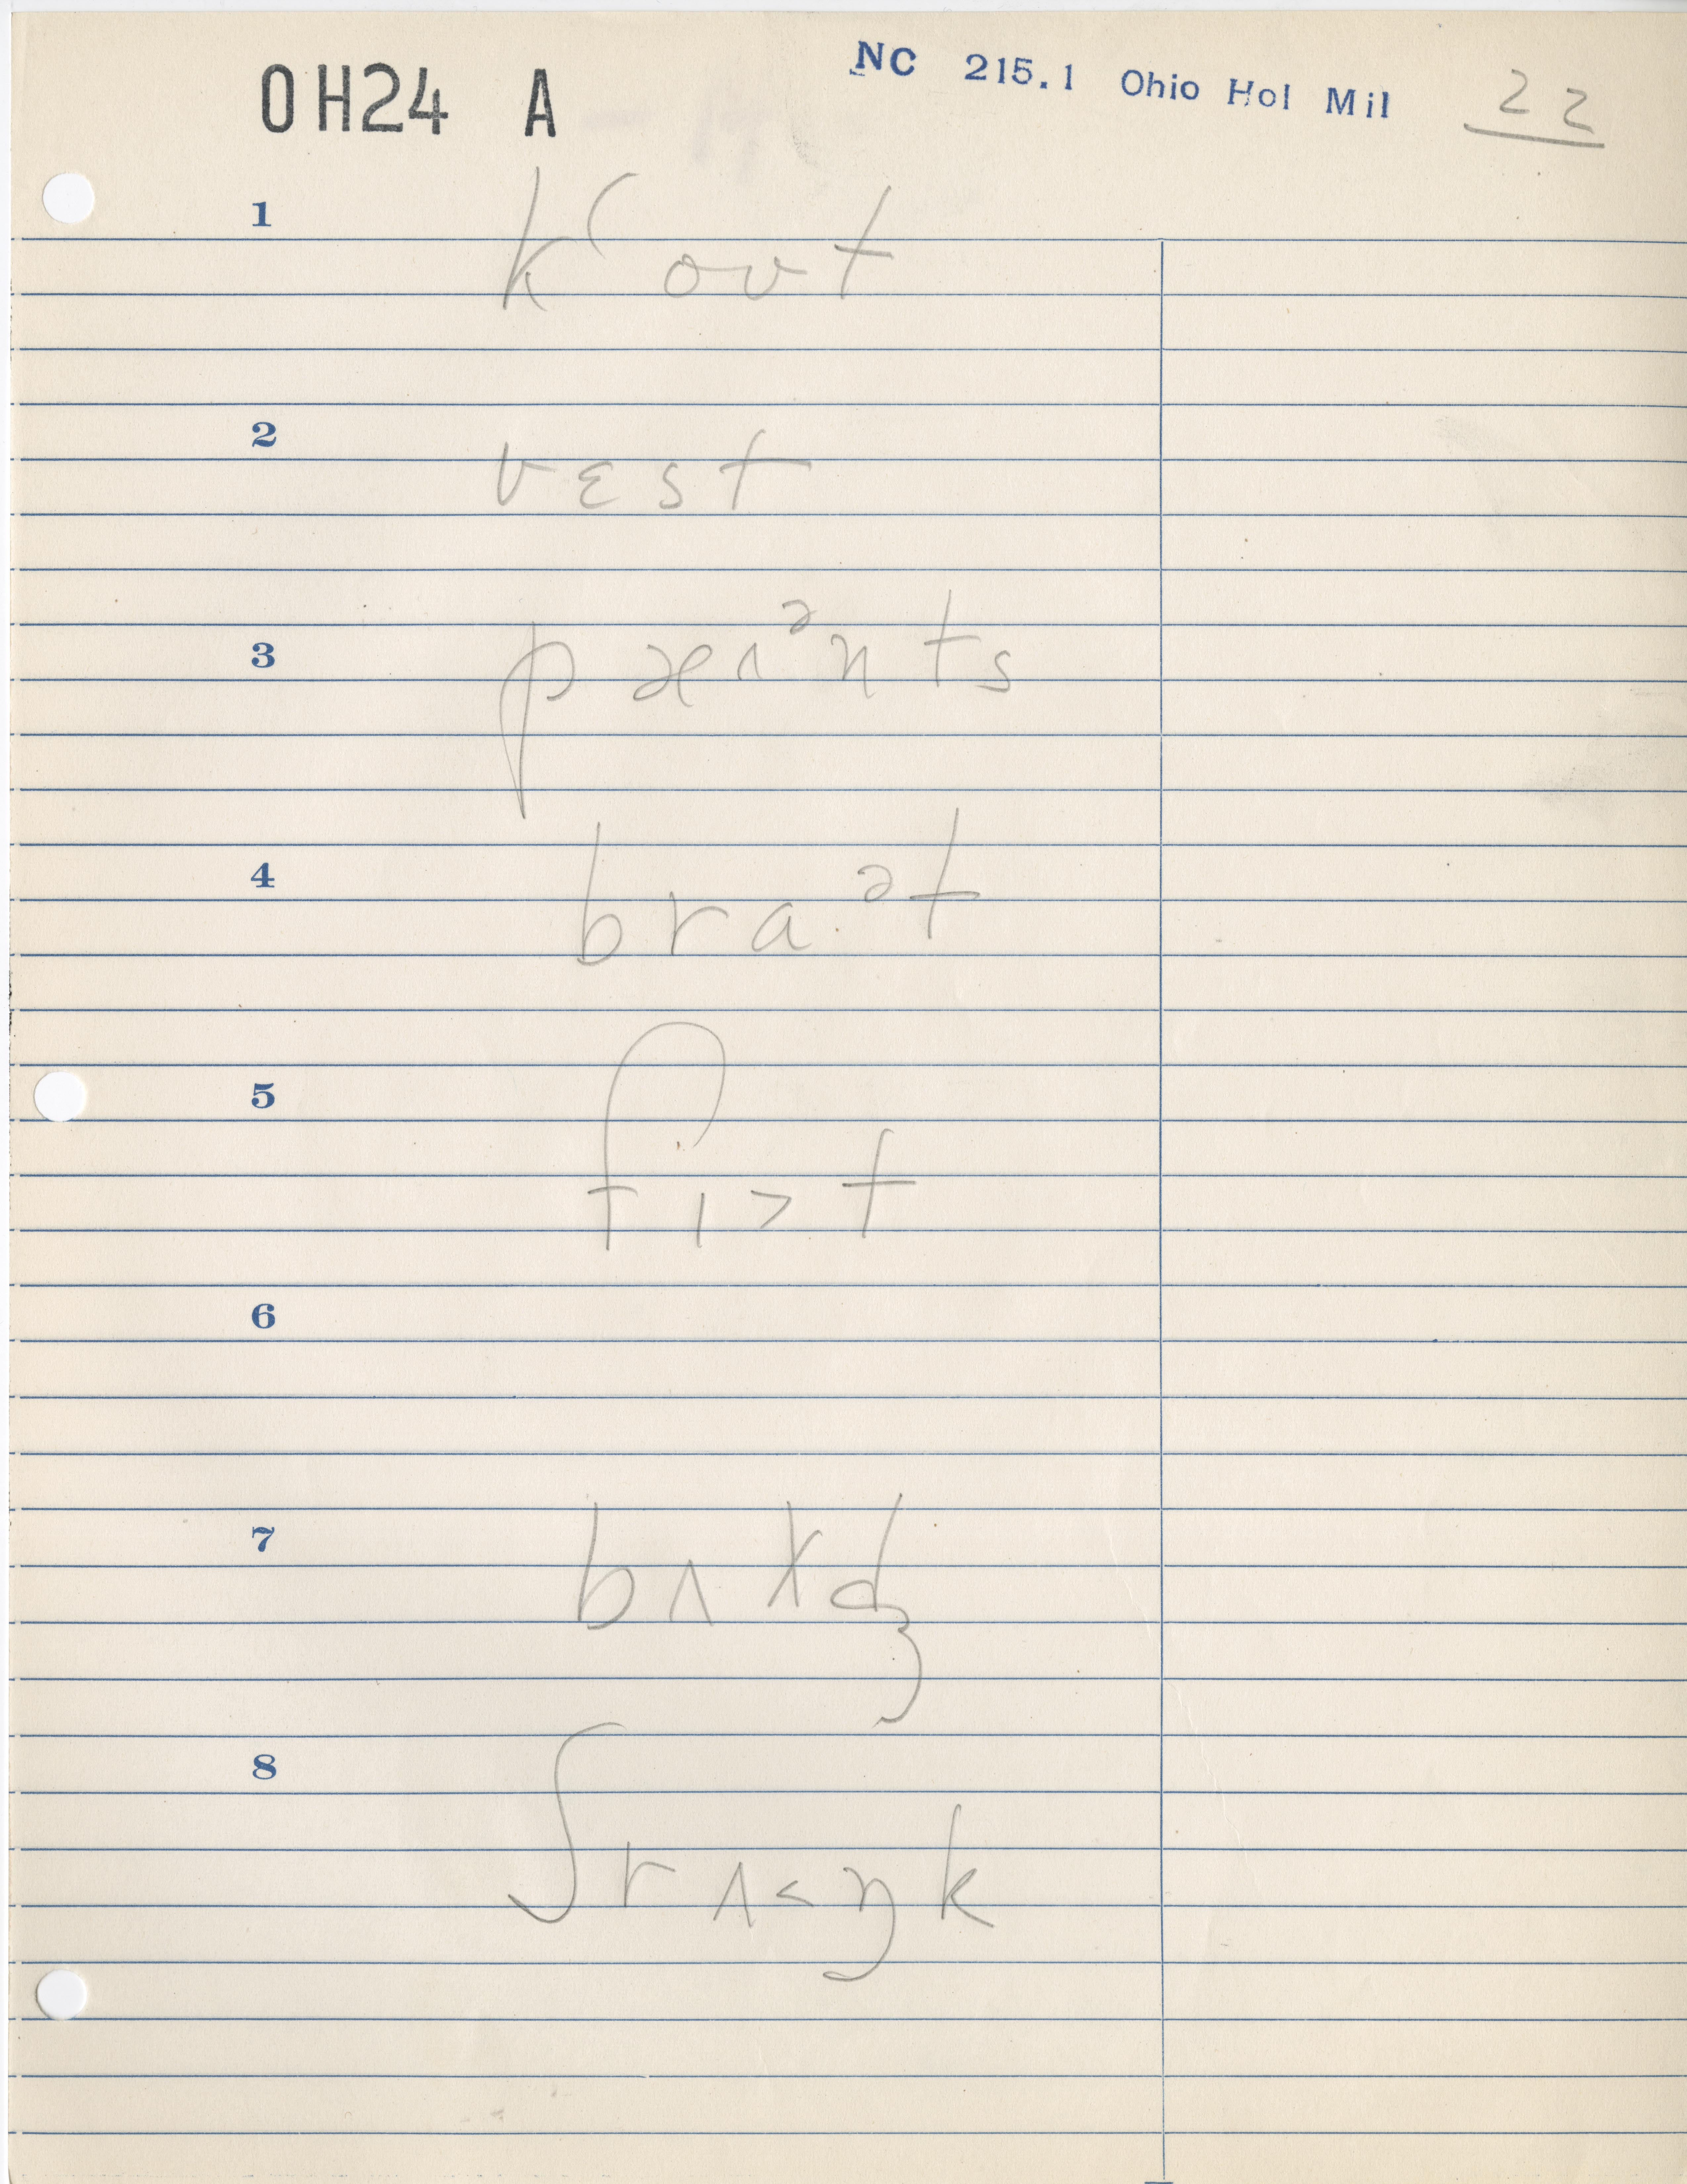 OH24 A
NC 215.1 Ohio Hol Mil
22
1 kʻoʊt
2 vɛst
3 pæ^ᵊnts
4 bra.ᵊt
5 fɪ>t
6
7 bʌɫdʒ
8 ʃrʌ<ŋk